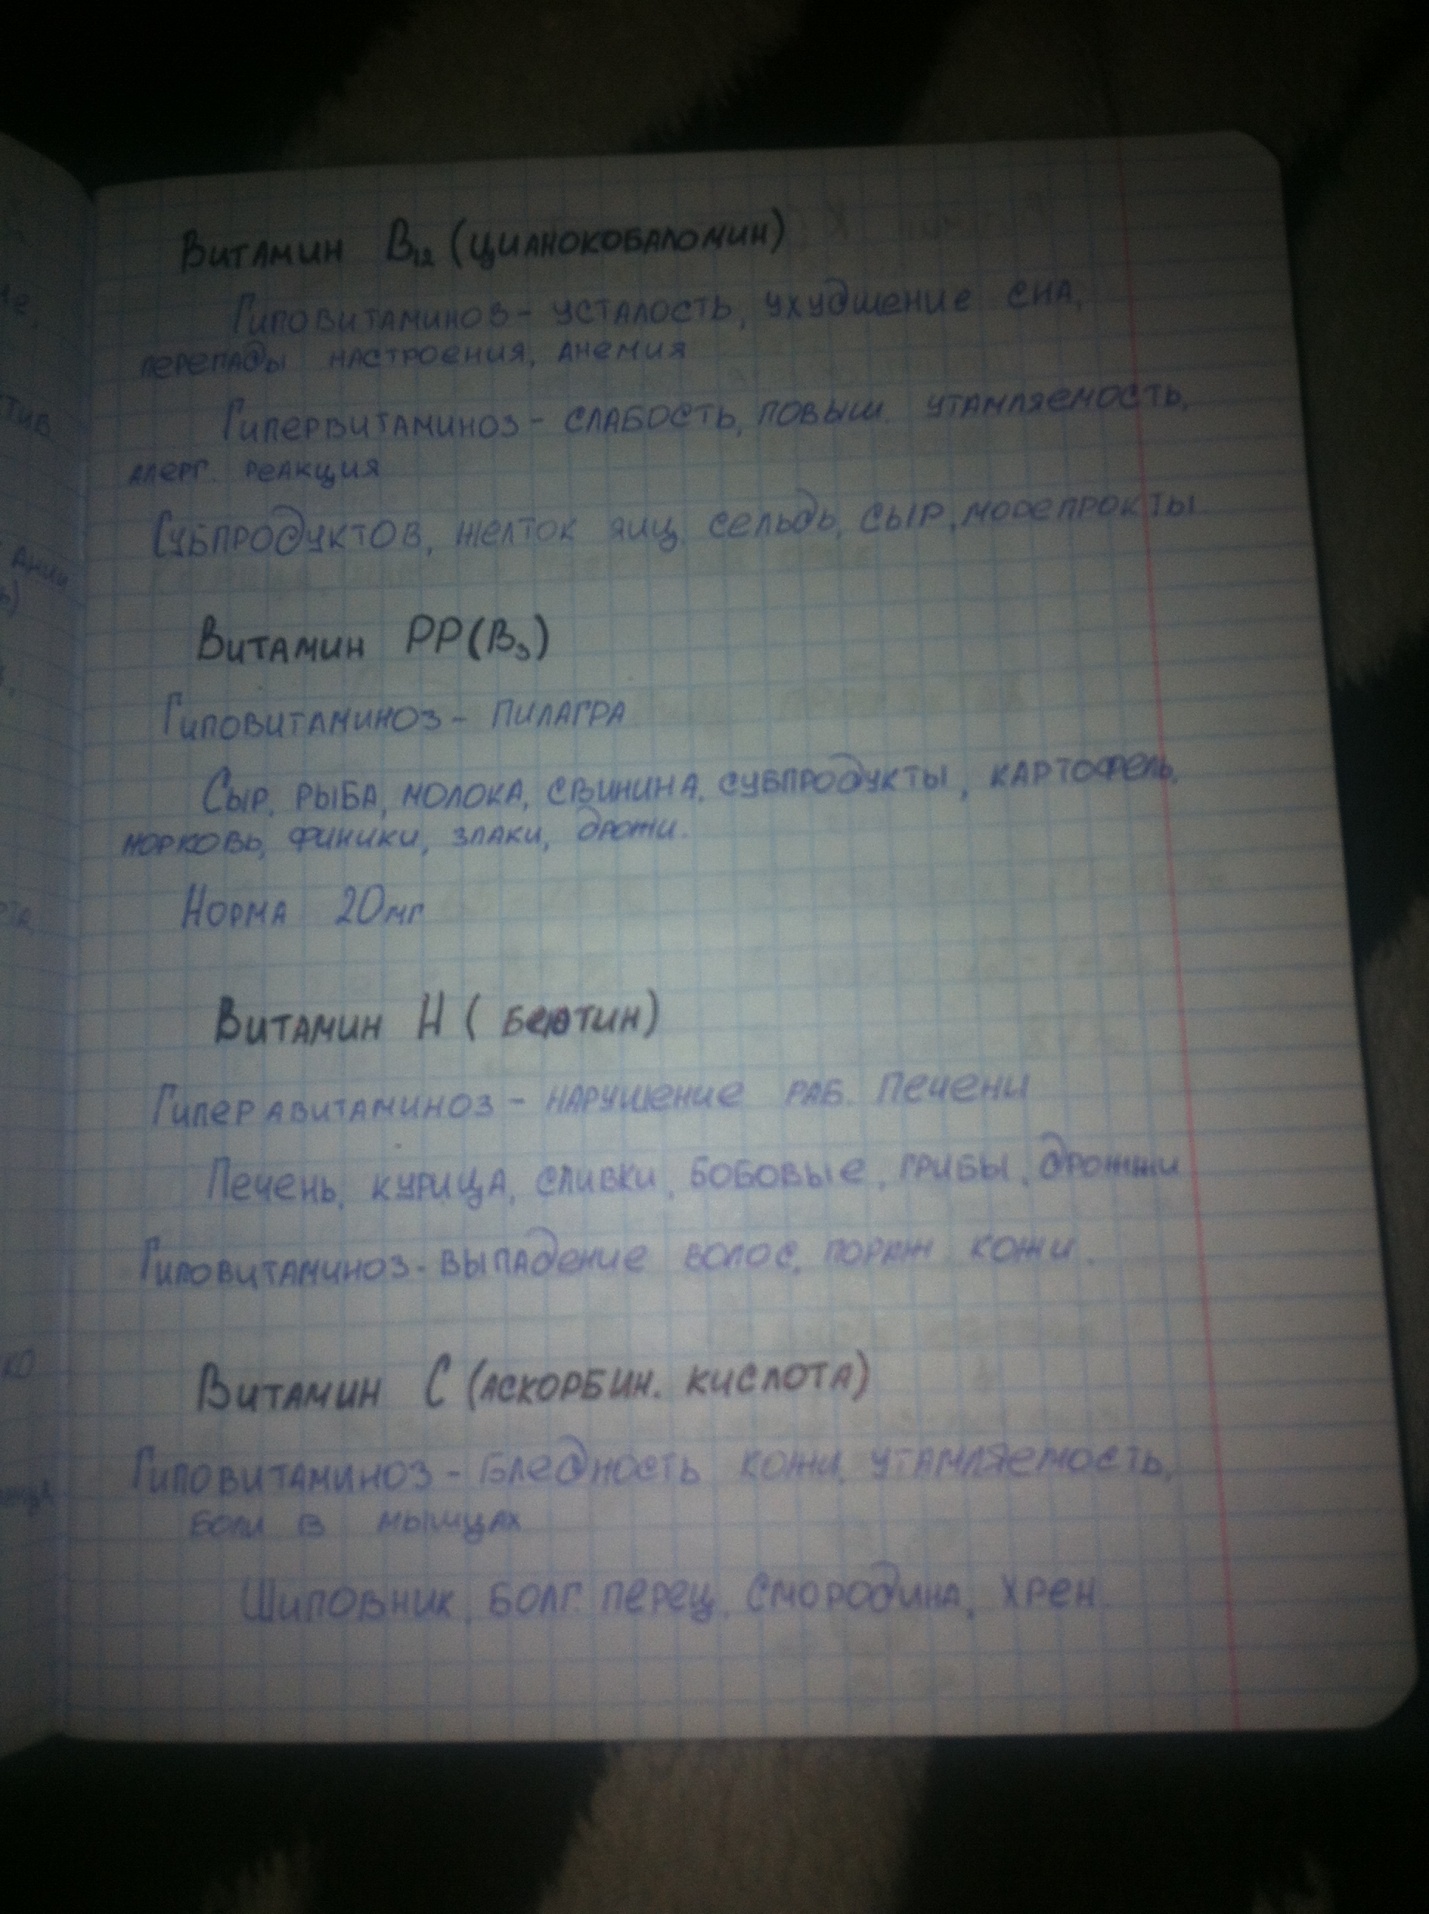 Витамин B12 (цианокобаломин)
Гиповитаминов - усталость, ухудшение сна,
перепады настроения, анемия
Гипервитаминоз - слабость, повыш. утамляемость,
алерг. реакция
Субпродуктов, желток яиц, сельдь, сыр, морепрокты
Витамин PP(B3)
Гиповитаминоз - пилагра
Сыр, рыба, молока, свинина, субпродукты, картофель,
морковь, финики, злаки, дрожи.
Норма 20мг
Витамин H (
Гиперавитаминоз - нарушение раб. печени
Печень, курица, сливки, бобовые, грибы, дрожжи
Гиповитаминоз - выпадение волос, пораж кожи.
Витамин C (аскорбин. кислота)
Гиповитаминоз - бледность кожи, утамляемость,
боли в мышцах
Шиповник, болг. перец, смородина, хрен.